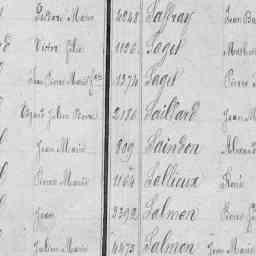 Marie 4048 Saffray Jean
Victor Félix 1126 Saget
Jean Pierre Marie 1374 Saget Pierre
Julien Pierre 2186 Saillard Jean M
Jean Marie 809 Saindon Alexand
Pierre Marie 1164 Sallieux René
Jean 3392 Salmon Pierre
Julien Marie 4473 Salmon Jean Marie